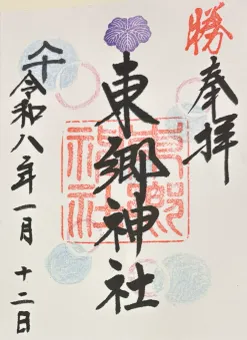 勝
奉拝
東郷神社
令和八年一月十二日